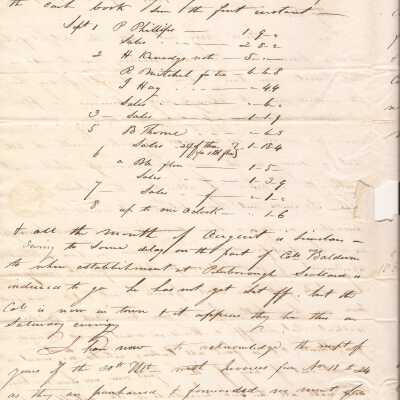 the cash book from the first instant —
Sept 1 P Phillips — 1. 9. "
Sales — 2 8. 2
2 H Kennedys note — 5. "
R Mitchel for tea — 6. 8
J Hay — 4 4
Sales — 6. "
3 — Sales — 1. 1. 9
5 B Thorne — 6. 3
Sales 1. 18. 4
6 a Bbl flour — 1. 5 —
Sales — 1. 3. 9
7 — Sales — 1. "
8 up to one oClock — 1. 6
& all the month of August is similar —
owing to some delay on the part of Coll Baldwin
to whose establishment at Peterborough Scotland is
induced to go he has not yet set off, but the
Col is now in town & it appears they leave this on
Saturday evening
I have now to acknowledge the receipt of
yours of the 20th Ult with invoices from No 18 to 24
as they are purchased & forwarded we must from